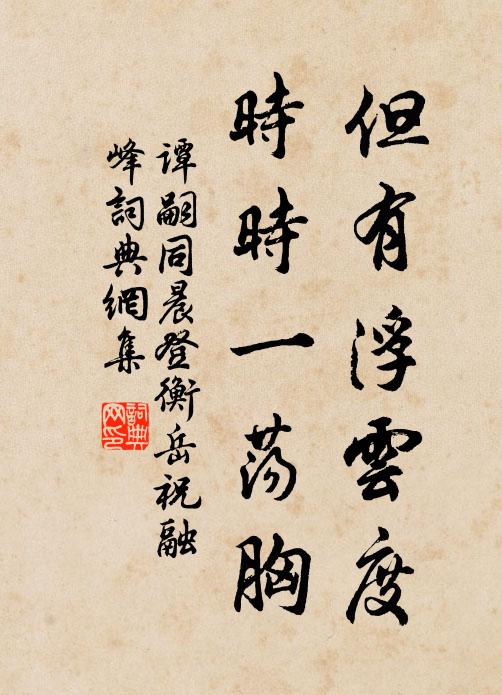 但有浮雲度
時時一荡胸
谭嗣同晨登衡岳祝融
峰詞典網集
詞典
网印